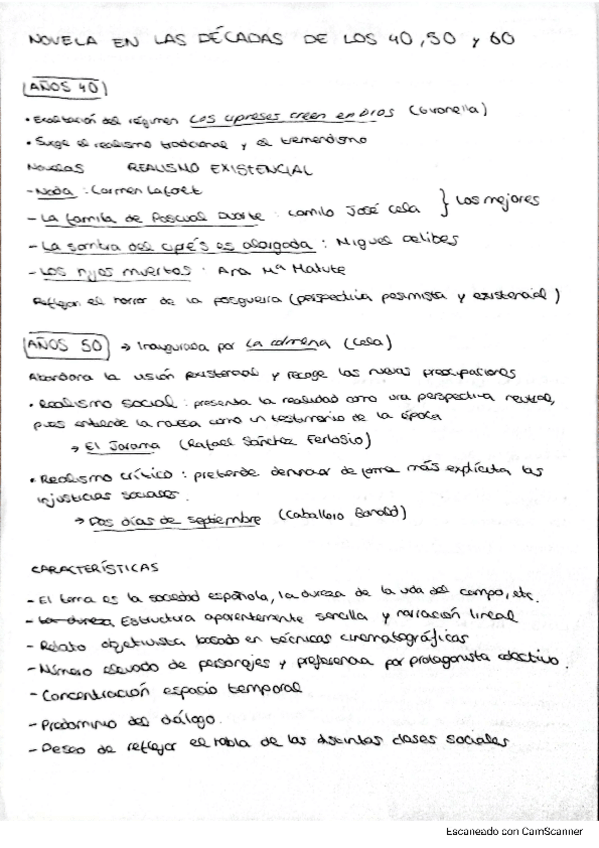 NOVELA EN LAS DÉCADAS DE LOS 40, 50 y 60
AÑOS 40
• Exaltación del régimen Los cipreses creen en Dios (Gironella)
• Surge el realismo tradicional y el tremendismo
Novelas REALISMO EXISTENCIAL
- Nada : Carmen Laforet
- La familia de Pascual Duarte : Camilo José Cela } Los mejores
- La sombra del ciprés es alargada : Miguel Delibes
- Los hijos muertos : Ana Mª Matute
Reflejan el horror de la posguerra (perspectiva pesimista y existencial)
AÑOS 50 → Inaugurada por La colmena (Cela)
Abandona la visión existencial y recoge las nuevas preocupaciones
• Realismo social : presenta la realidad como una perspectiva neutral,
pues entiende la novela como un testimonio de la época
→ El Jarama (Rafael Sánchez Ferlosio)
• Realismo crítico : pretende denunciar de forma más explícita las
injusticias sociales.
→ Dos días de septiembre (Caballero Bonald)
CARACTERÍSTICAS
- El tema es la sociedad española, la dureza de la vida del campo, etc.
- La dureza Estructura aparentemente sencilla y narración lineal
- Relato objetivista basado en técnicas cinematográficas
- Número elevado de personajes y preferencia por protagonista colectivo.
- Concentración espacio temporal
- Predominio del diálogo.
- Deseo de reflejar el habla de las distintas clases sociales
Escaneado con CamScanner